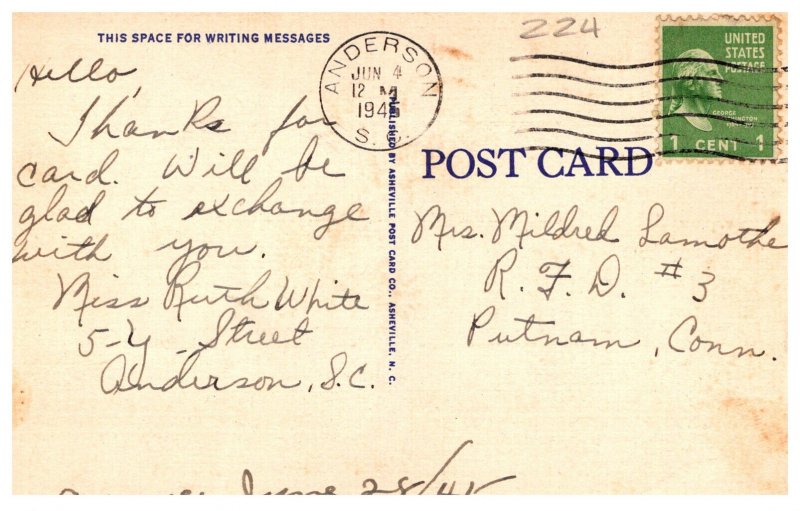 THIS SPACE FOR WRITING MESSAGES
Hello,
Thanks for
card. Will be
glad to exchange
with you.
Miss Ruth White
5-Y- Street
Anderson, S.C.
June 28/45
PUBLISHED BY ASHEVILLE POST CARD CO., ASHEVILLE, N. C.
ANDERSON
JUN 4
12 M
194
S. C.
224
UNITED
STATES
POSTAGE
GEORGE
WASHINGTON
1 CENT 1
POST CARD
Mrs. Mildred Lamothe
R. F. D. #3
Putnam, Conn.